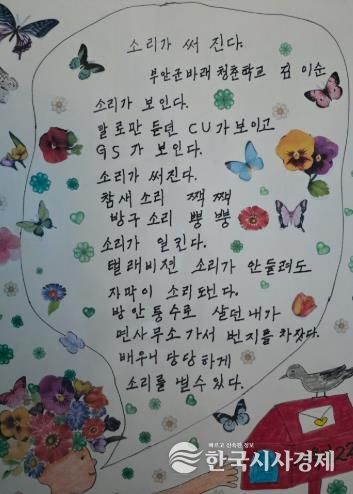 소리가 써 진다.
부안군바래 청춘학교 김 이순
소리가 보인다.
말로만 듣던 CU가 보이고
GS 가 보인다.
소리가 써진다.
참새 소리 짹 짹
방구 소리 뿡 뿡
소리가 읽힌다.
텔래비젼 소리가 안들려도
자막이 소리된다.
방안통수로 살던 내가
면사무소가서 번지를 차잤다.
배우니 당당하게
소리를 낼수있다.
빠르고 신속한 정보
한국시사경제